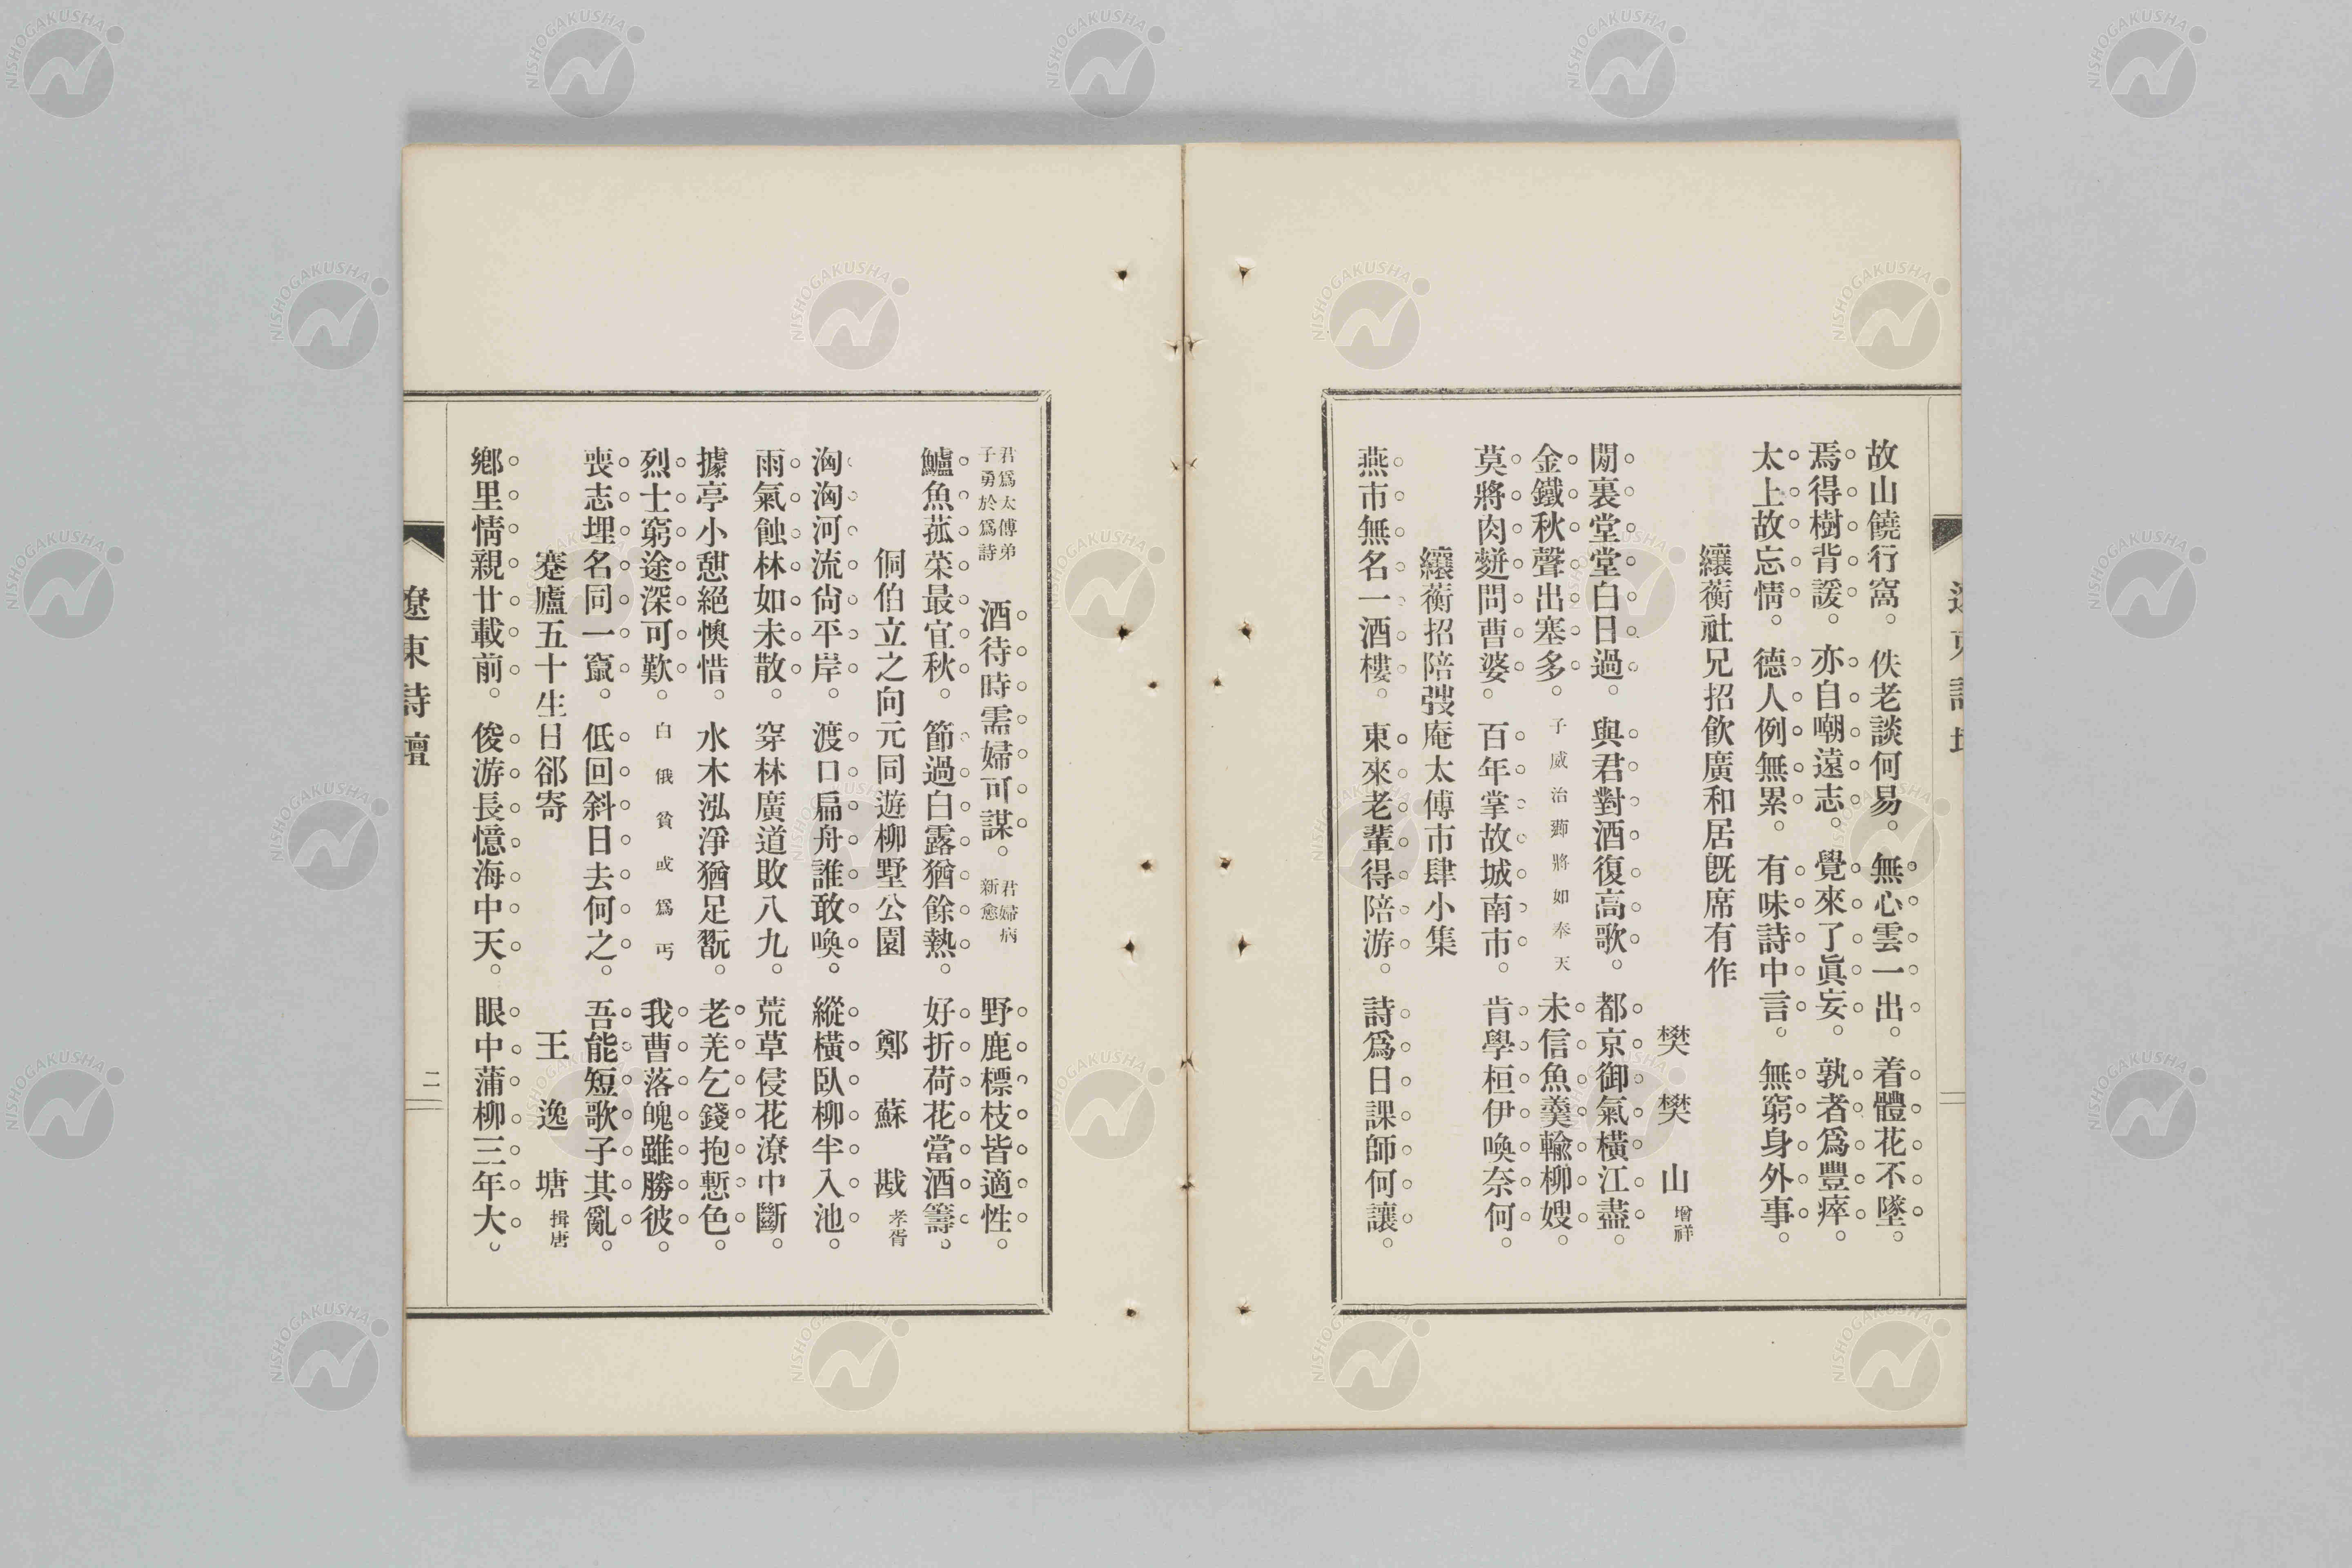 故山饒行窩。佚老談何易。無心雲一出。着體花不墜。
焉得樹背諼。亦自嘲遠志。覺來了眞妄。孰者爲豐瘁。
太上故忘情。德人例無累。有味詩中言。無窮身外事。
纕蘅社兄招飮廣和居旣席有作
樊樊山增祥
閒裏堂堂白日過。與君對酒復高歌。都京御氣橫江盡。
金鐵秋聲出塞多。子威治鄣將如奉天未信魚羹輸柳嫂。
莫將肉䴵問曹婆。百年掌故城南市。肯學桓伊喚奈何。
纕蘅招陪弢庵太傅市肆小集
燕市無名一酒樓。東來老輩得陪游。詩爲日課師何讓。
君爲太傅弟子勇於爲詩酒待時需婦可謀。君婦病新愈野鹿標枝皆適性。
鱸魚菰菜最宜秋。節過白露猶餘熱。好折荷花當酒籌。
侗伯立之向元同遊柳墅公園 鄭蘇戡孝胥
洶洶河流尙平岸。渡口扁舟誰敢喚。縱橫臥柳半入池。
雨氣蝕林如未散。穿林廣道敗八九。荒草侵花潦中斷。
據亭小憩絕懊惜。水木泓淨猶足翫。老羌乞錢抱慙色。
烈士窮途深可歎。白俄貧或爲丐我曹落魄雖勝彼。
喪志埋名同一竄。低回斜日去何之。吾能短歌子其亂。
蹇廬五十生日郤寄 王逸塘揖唐
鄕里情親廿載前。俊游長憶海中天。眼中蒲柳三年大。
遼東詩壇
二
NISHOGAKUSHA